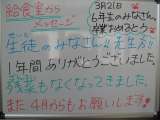 給食室から
メッセージ
3月2日
6年生のみなさん
卒業おめでとう
生徒のみなさん!!先生方!!
1年間ありがとうございました。
残菜もなくなってきました。
また4月からもお願いします!